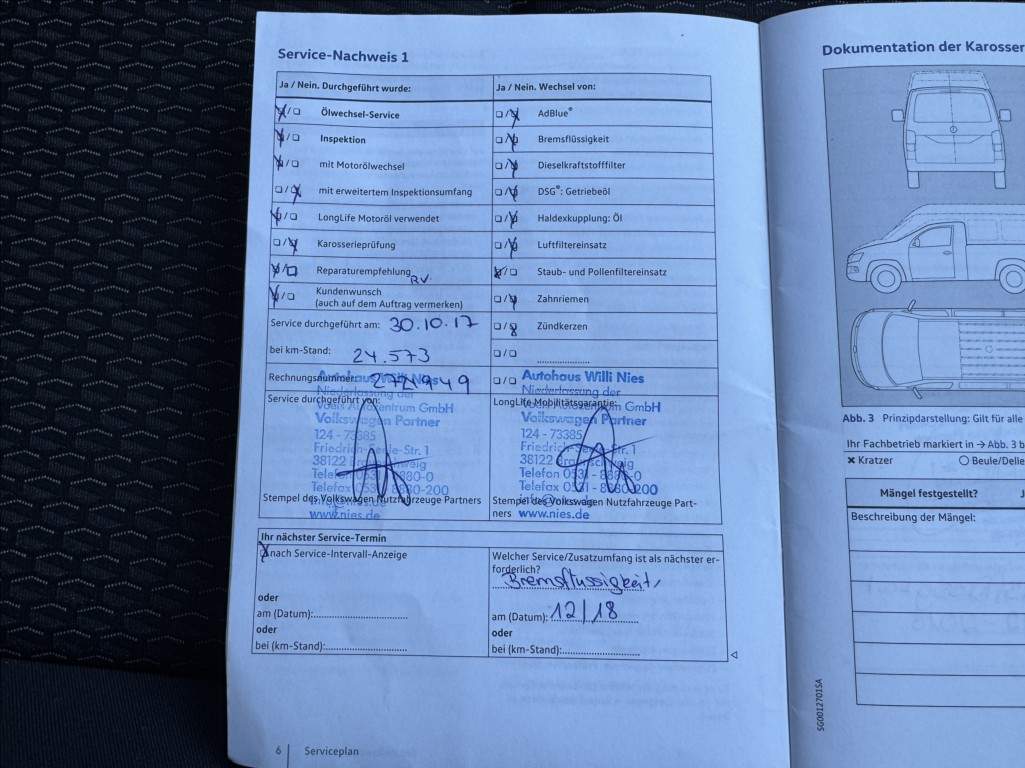 Service-Nachweis 1
Ja / Nein. Durchgeführt wurde:
Ölwechsel-Service
Inspektion
mit Motorölwechsel
mit erweitertem Inspektionsumfang
LongLife Motoröl verwendet
Karosserieprüfung
Reparaturempfehlung RV
Kundenwunsch
(auch auf dem Auftrag vermerken)
Service durchgeführt am: 30.10.17
bei km-Stand: 24.573
Rechnungsnummer:
Service durchgeführt von:
Autohaus Willi Nies
Niederlassung der
Voets Autozentrum GmbH
Volkswagen Partner
124 - 73385
38122
Stempel des Volkswagen Nutzfahrzeuge Partners
www.nies.de
Ja / Nein. Wechsel von:
AdBlue®
Bremsflüssigkeit
Dieselkraftstofffilter
DSG®: Getriebeöl
Haldexkupplung: Öl
Luftfiltereinsatz
Staub- und Pollenfiltereinsatz
Zahnriemen
Zündkerzen
Autohaus Willi Nies
Niederlassung der
LongLife Mobilitätsgarantie:
GmbH
Volkswagen Partner
124 - 73385
38122
Stempel des Volkswagen Nutzfahrzeuge Part-
ners www.nies.de
Ihr nächster Service-Termin
nach Service-Intervall-Anzeige
oder
am (Datum):
oder
bei (km-Stand):
Welcher Service/Zusatzumfang ist als nächster er-
forderlich?
Bremsflüssigkeit,
am (Datum): 12/18
oder
bei (km-Stand):
6 Serviceplan
Dokumentation der Karosser
Abb. 3 Prinzipdarstellung: Gilt für alle
Ihr Fachbetrieb markiert in → Abb. 3 b
Kratzer Beule/Delle
Mängel festgestellt? J
Beschreibung der Mängel:
SG0012701SA